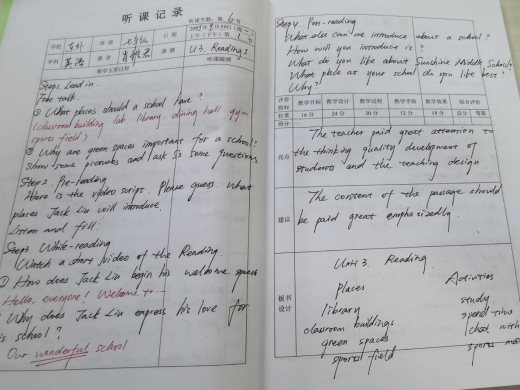 听课记录
听课节数: 第 6 节
学校
班级 七年级
日期
上午(下午)第 1 节
学科 英语
教者
课题 U3. Reading 1
教学主要过程
听课随感
Step1. Lead in.
Free talk.
① What places should a school have?
(classroom building lab library dining hall gym
sports field)
② Why are green spaces important for a school?
show some pictures and ask Ss some questions
Step2. Pre-reading
Here is the video script. Please guess what
places Jack Liu will introduce.
Listen and fill.
Step3. While-reading
Watch a short video of the Reading.
① How does Jack Liu begin his welcome speech
Hello, everyone! Welcome to...
Why does Jack Liu express his love for
is school?
Our wonderful school
Step4. Post-reading
What else can we introduce about a school?
How will you introduce is?
What do you like about Sunshine Middle School?
What place at your school do you like best?
Why?
评价指标 教学目标 教学设计 教学过程 教学手段 教学效果 综合评价
权重 16分 24分 30分 12分 18分 总分 等第
得分
亮点
The teacher paid great attention to
the thinking quality development of
students and the teaching design
建议
The content of the passage should
be paid great emphasizedly.
板书设计
Unit 3. Reading
Places Activities
library study
classroom buildings spend time
green spaces chat with
sports field sports